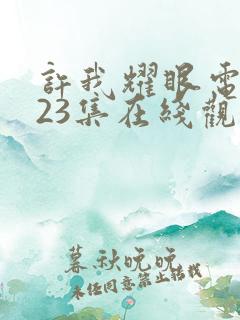 許我耀眼電
23集在綫觀
暮秋晚晚
未經同意禁止轉載